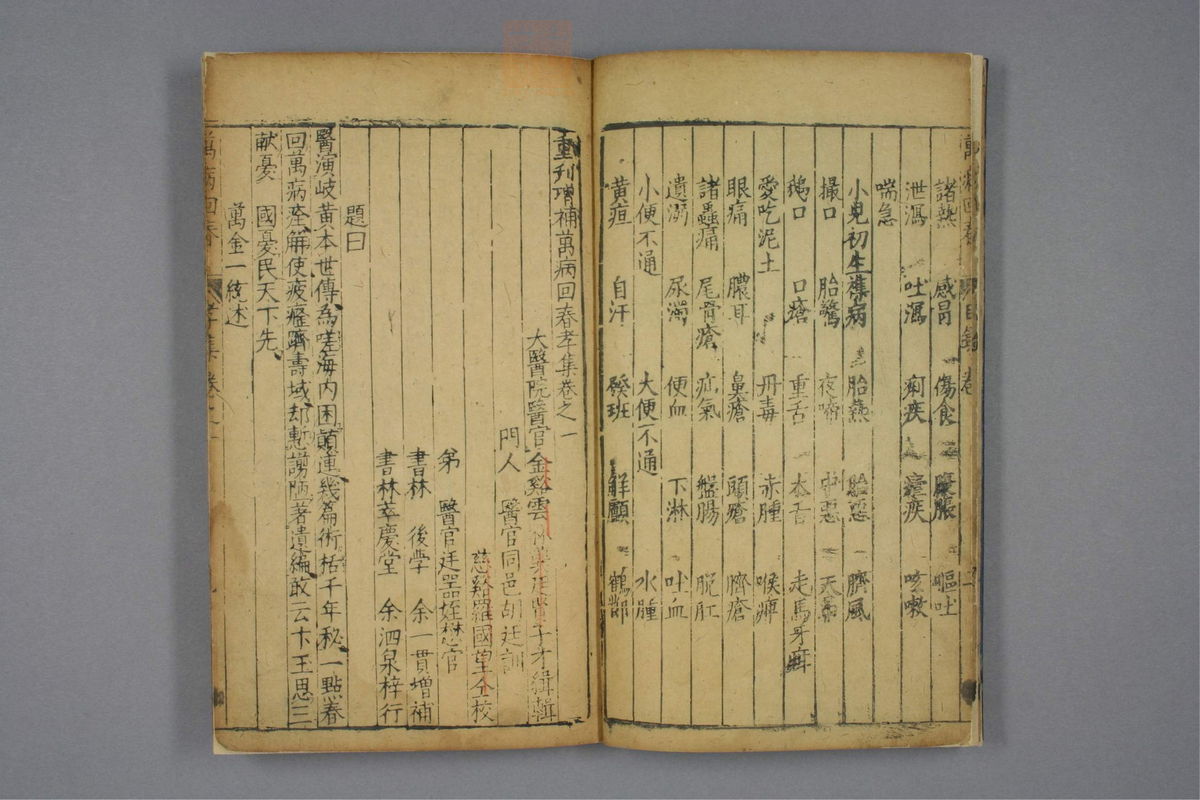 諸熱 感冒 傷食 腹脹 嘔吐
泄瀉 吐瀉 痢疾 瘧疾 咳嗽
喘急
小兒初生雜病 胎熱 臍風
撮口 胎驚 夜啼 中惡 天
鵝口 口瘡 重舌 木舌 走馬牙疳
愛吃泥土 丹毒 赤腫 喉痺
眼痛 膿耳 鼻瘡 頭瘡 臍瘡
諸蟲痛 尾骨瘡 疝氣 盤腸 脫肛
遺溺 尿濁 便血 下淋 吐血
小便不通 大便不通 水腫
黄疸 自汗 發班 解顱 鶴膝
重刋增補萬病回春孝集卷之一
大醫院醫官金谿雲 龔廷賢子才緝輯
門人 醫官同邑胡廷訓
慈谿羅國望仝校
弟 醫官廷器姪懋官
書林 後學 余一貫增補
書林萃慶堂 余泗泉梓行
題曰
醫演岐黄本世傳為嗟海内困顛連幾篇術括千年秘一點春
回萬病痊解使疲癃躋壽域却慙謭陋著遺編敢云卞玉思三
献憂 國憂民天下先
萬金一統述
萬病回春 孝集 卷之一